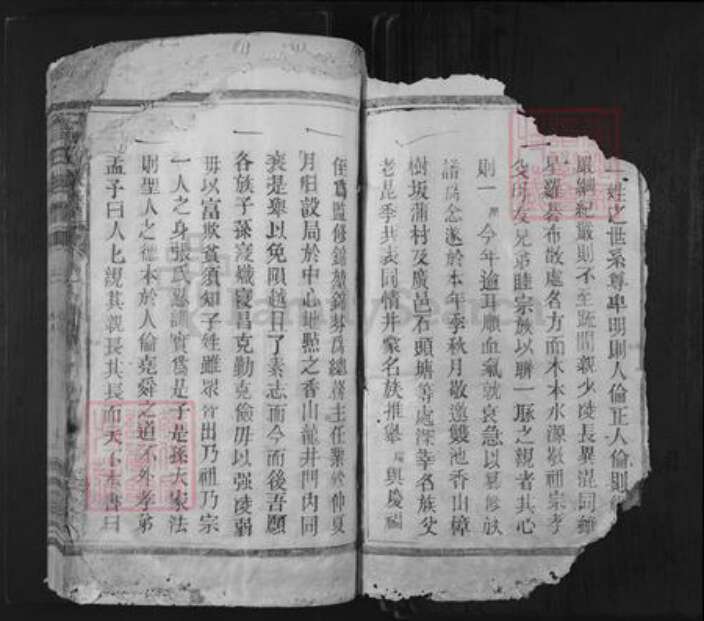 一姓之世系尊卑明則人倫正人倫則
嚴綱紀嚴則不至疏間親少陵長異混同雖
星羅碁布散處各方而木本水源敬祖宗孝
父母友兄弟睦宗族以聯一脈之親者其心
則一 今年逾耳順血氣就衰急以修族
譜爲念遂於本年季秋月敬邀雙池香山樟
樹坂蒲村及廣邑石頭塘等處深幸名族父
老昆季共表同情幷蒙名族推舉 與慶
侄爲監修錦 錦芬爲總務主任業於仲夏
月歸設局於中心地點之香山龍井門內同
衷是舉以免隕越且了素志而今而後吾願
各族子孫寖熾寖昌克勤克儉毋以强凌弱
毋以富欺貧須知子姓雖眾皆出乃祖乃宗
一人之身張氏 是子是孫大家法
則聖人之德本於人倫堯舜之道不外孝弟
孟子曰人人親其親長其長而天下 書曰